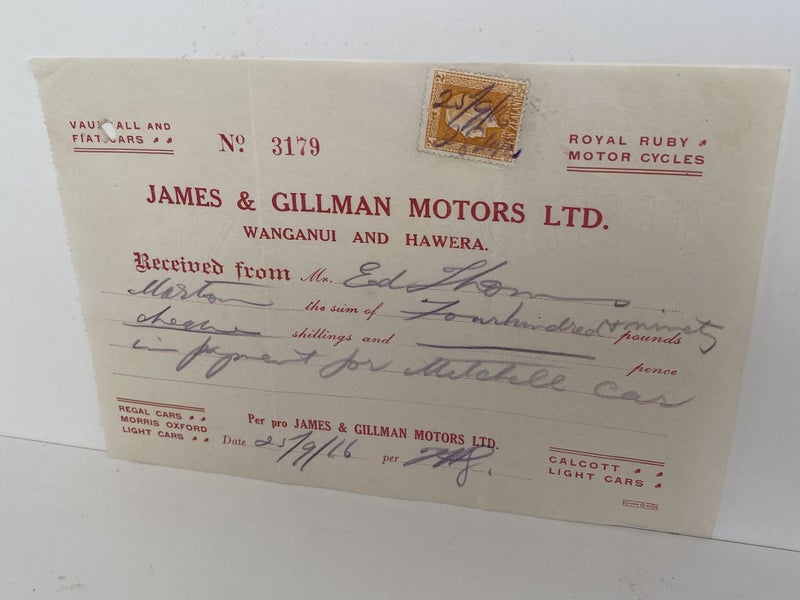 VAUXHALL AND
FIAT CARS
No 3179
25/9/16
ROYAL RUBY
MOTOR CYCLES
JAMES & GILLMAN MOTORS LTD.
WANGANUI AND HAWERA.
Received from Mr. Ed Thom
Marton the sum of Fourhundred & ninety pounds
cheque shillings and pence
in payment for Mitchell Car
REGAL CARS
MORRIS OXFORD
LIGHT CARS
Per pro JAMES & GILLMAN MOTORS LTD.
Date 25/9/16 per
CALCOTT
LIGHT CARS